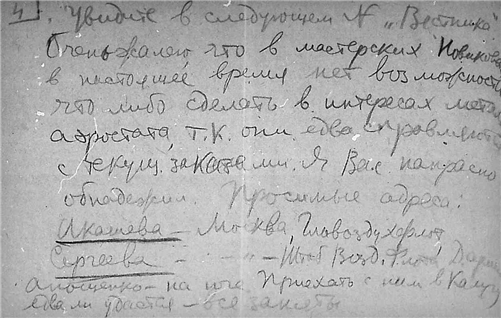 4). Увидите в следующем N „Вестника
Очень жалею что в мастерских Новикова
в настоящее время нет возможности
что либо сделать в интересах метал
аэростата, т.к. они едва справляются
с текущ. заказами. Я Вас напрасно
обнадежил. Просимые адреса:
Акашева – Москва, Главоздухфлот
Сергеева – " – Штаб Возд. Флота
на юге. Приехать с ним в Калугу
едва ли удастся – все заняты